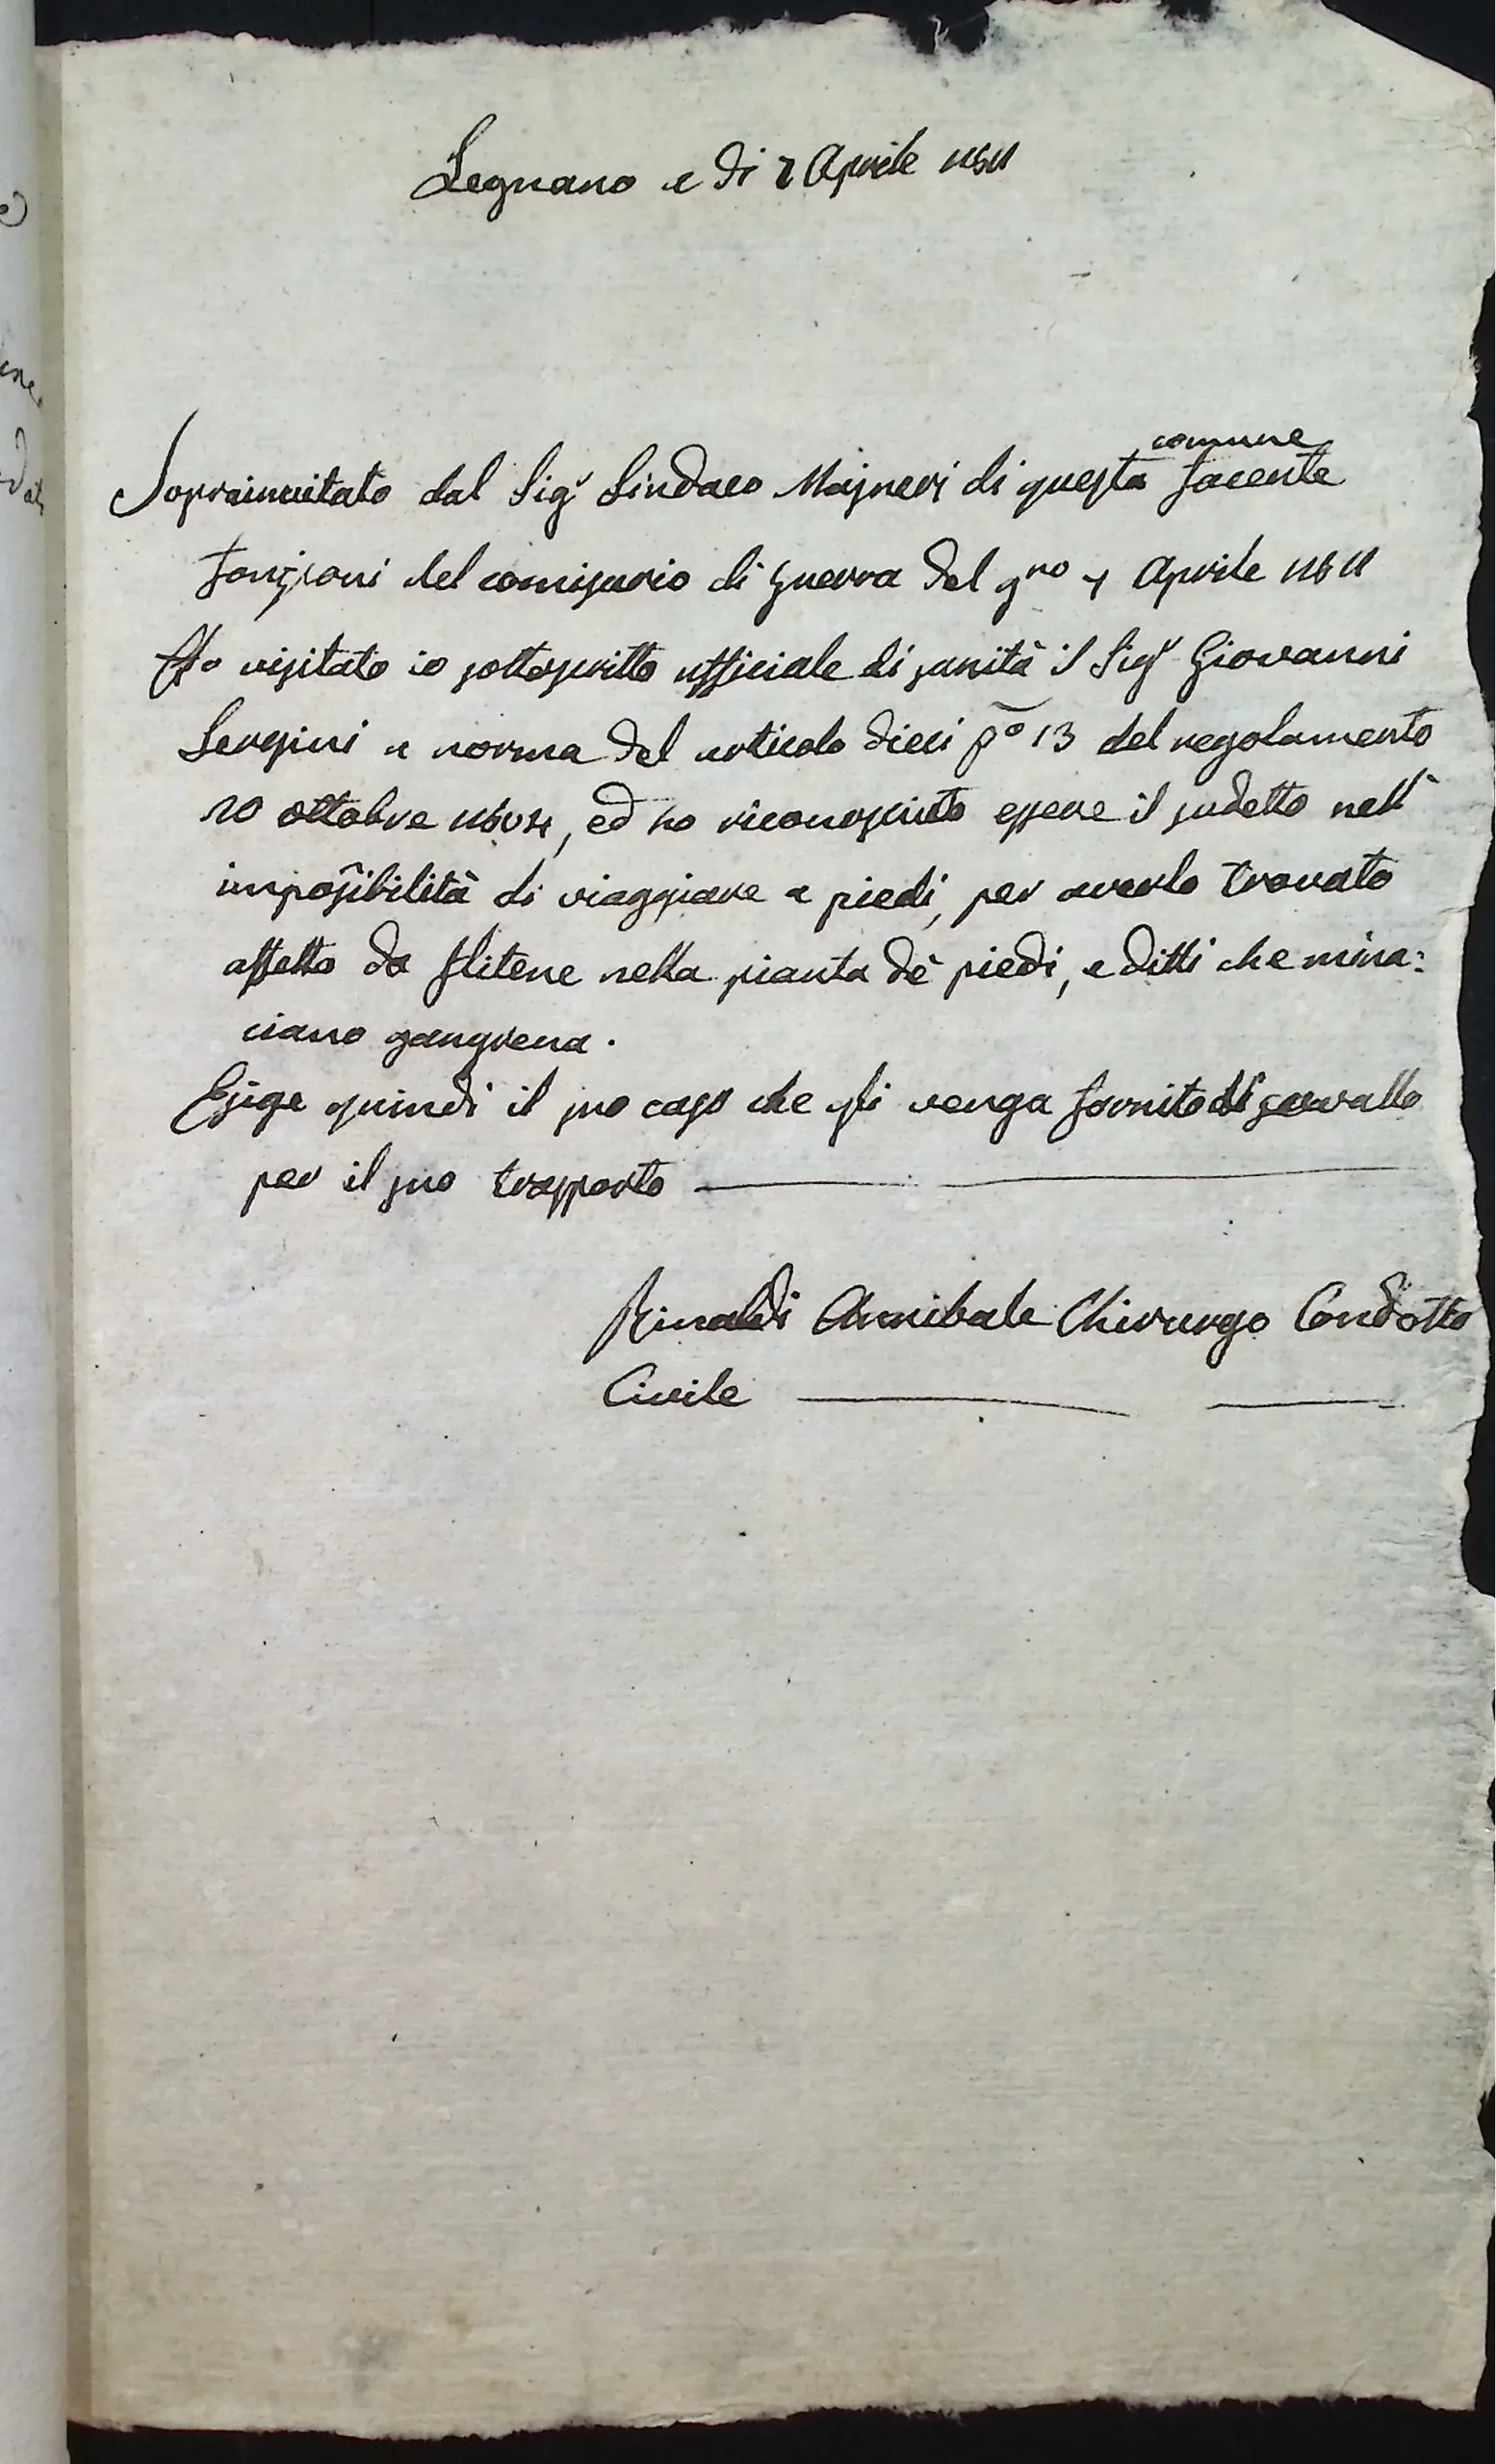 Legnano e di 7 Aprile 1811
comune
Sopraincitato dal Sigr Sindaco Majneri di questa facente
fonzioni del comisario di guerra del gno 7 Aprile 1811
Ho visitato io sottoscritto ufficiale di sanità il Sigr Giovanni
Sergini a norma del articolo dieci 13 del regolamento
20 ottobre 1804, ed ho riconosciuto essere il sudetto nell'
impossibilità di viaggiare a piedi, per averlo trovato
affetto da flitene nella pianta de' piedi, e ditti che mina:
ciano gangrena.
Esige quindi il suo caso che gli venga fornito di cavallo
per il suo trasporto
Rinaldi Annibale Chirurgo Condotto
Civile